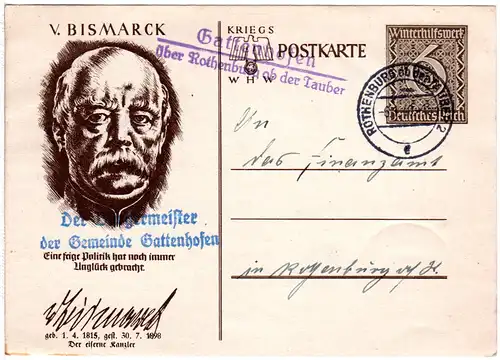 V. BISMARCK
KRIEGS
WHW
POSTKARTE
Winterhilfswerk
6
Deutsches Reich
Gattenhofen
über Rothenburg ob der Tauber
ROTHENBURG ob der
e
An
das Finanzamt
in Rothenburg o/T.
Der Bürgermeister
der Gemeinde Gattenhofen
Eine feige Politik hat noch immer
Unglück gebracht.
v Bismarck
geb. 1. 4. 1815, gest. 30. 7. 1898
Der eiserne Kanzler